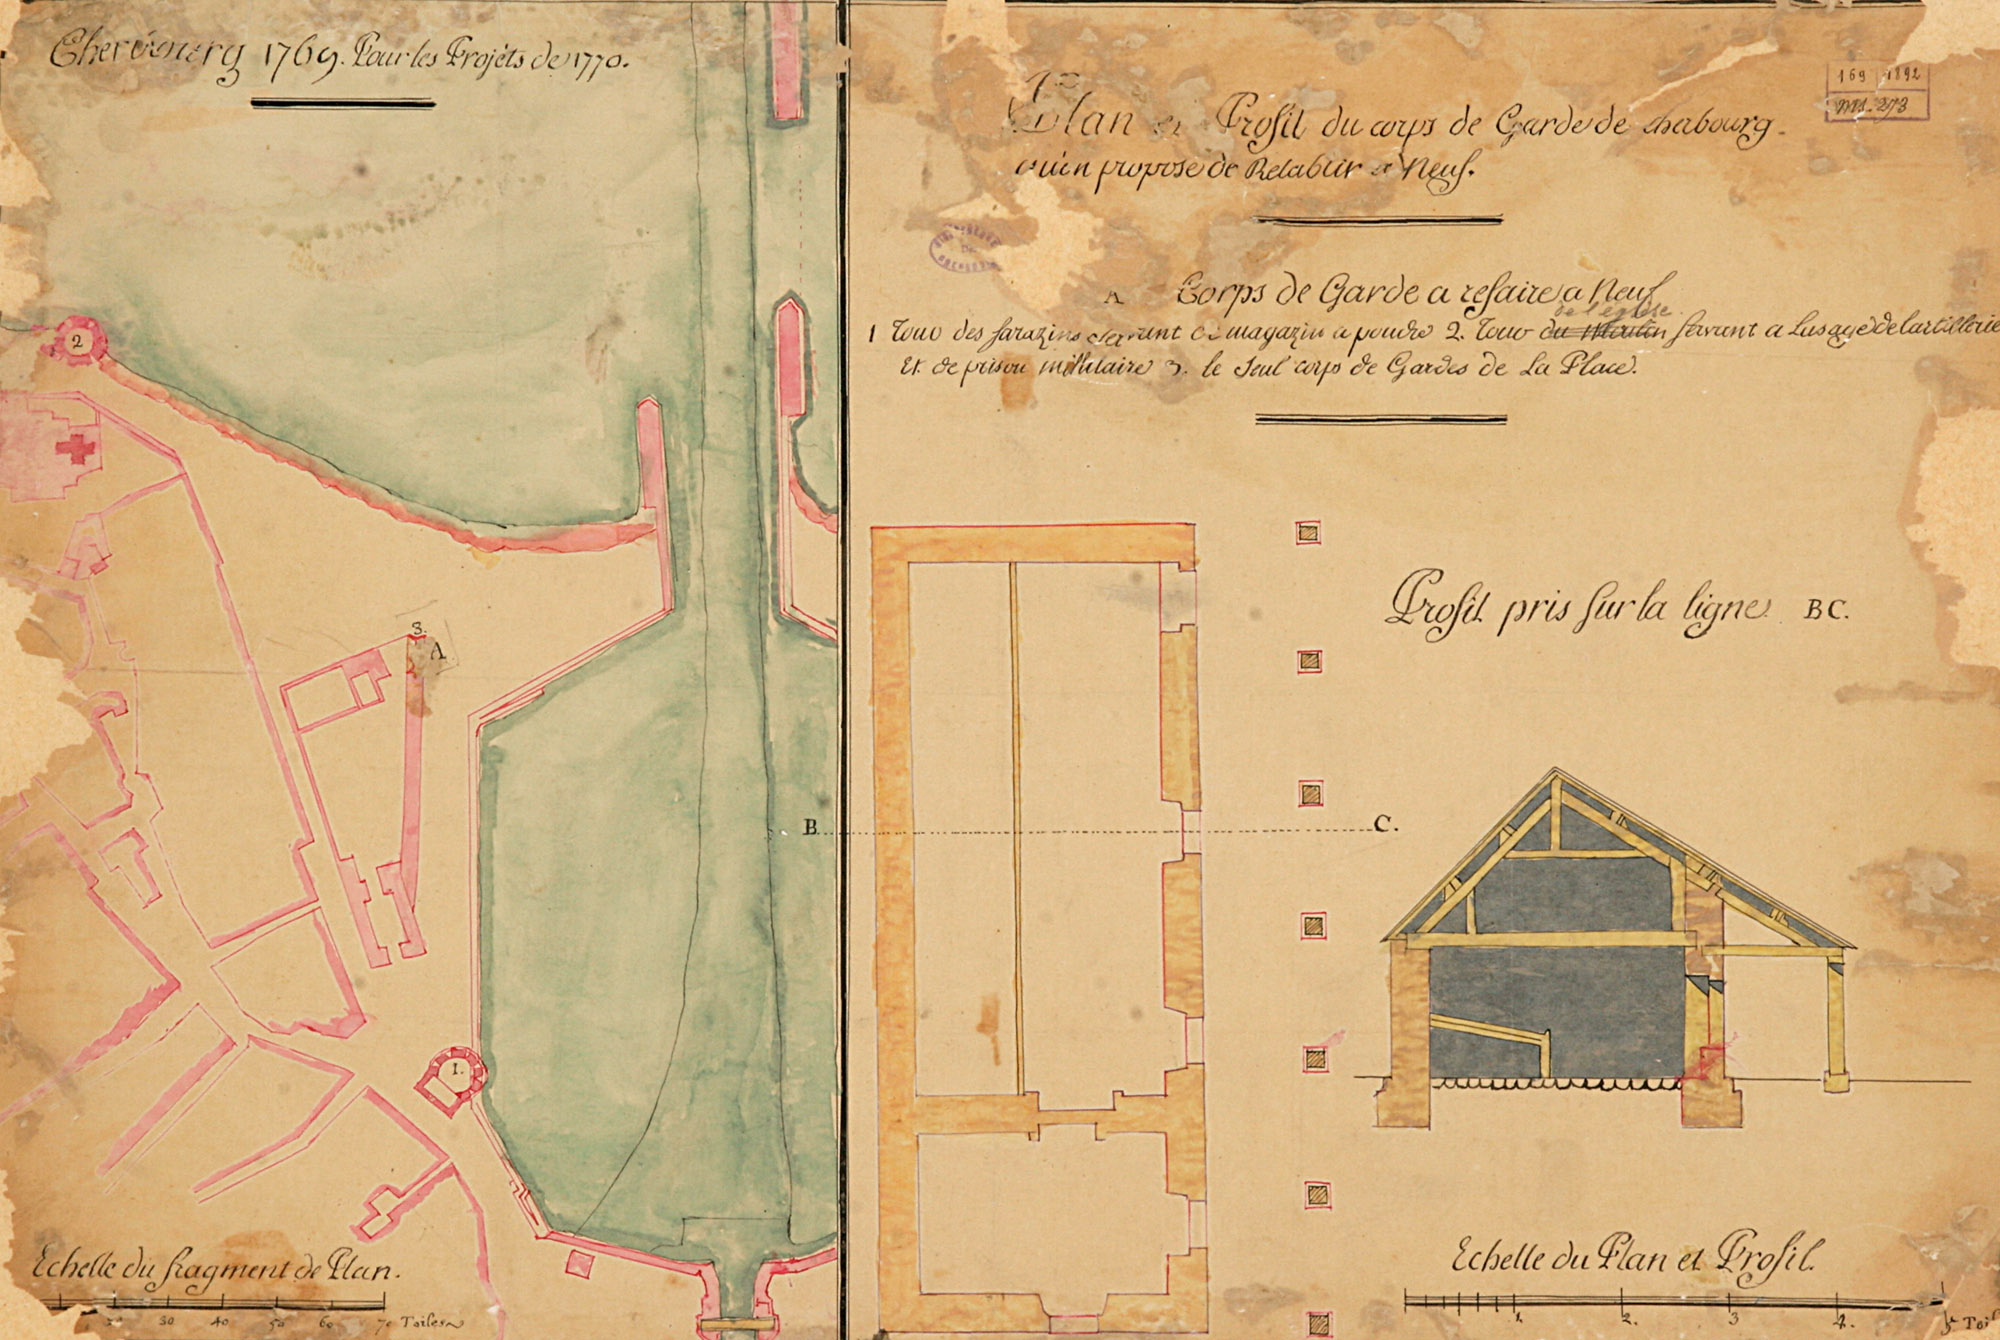 Cherbourg 1769. Pour les Projets de 1770.
Plan et Profil du corps de Garde de chabourg.
qu'en propose de Retablir a Neuf.
169 1892
ms. 273
A Corps de Garde a refaire a Neuf
de l'église
1 Tour des sarazins servant de magazin a poudre 2. Tour du Moulin servant a Lusage de lartillerie
Et de prison millitaire 3. le seul corps de Gardes de La Place.
Profil pris sur la ligne BC.
2
3.
A
B
C.
1.
Echelle du fragment de Plan.
20 30 40 50 60 70 Toises
Echelle du Plan et Profil.
1. 2. 3 4. 5 Toi